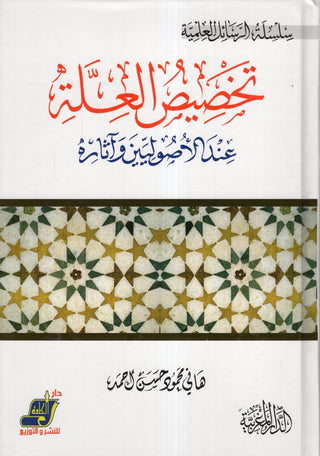 سلسلة الرسائل العلمية
تخصيص العلة
عند الأصوليين وآثاره
هاني محمود حسن أحمد
الدار المغربية
دار
الكلمة
للنشر والتوزيع